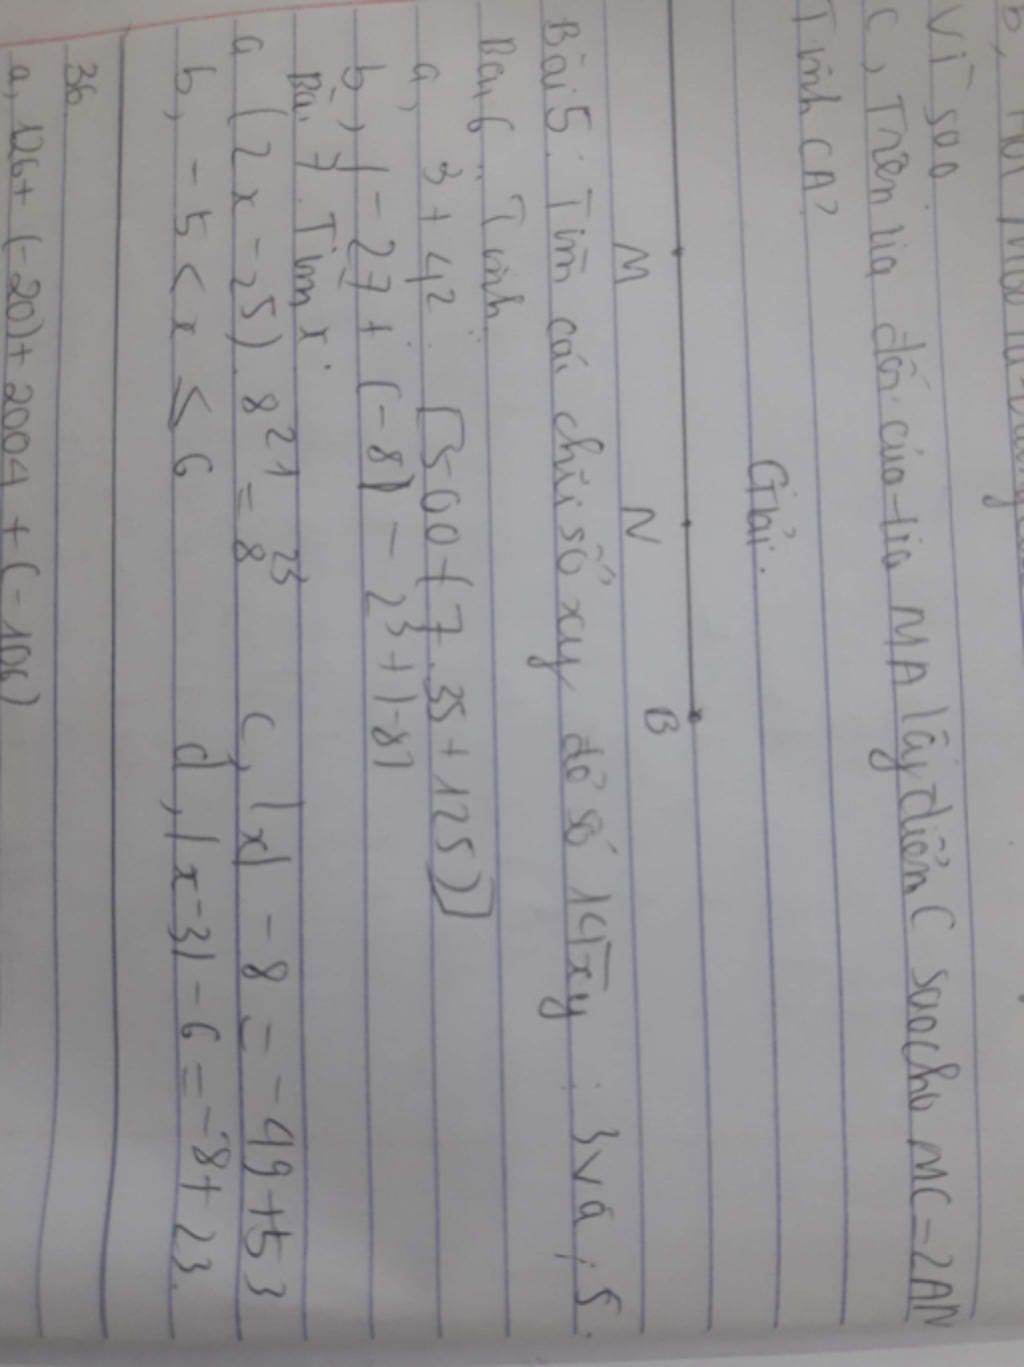 Vì sao
C, Trên tia đối của tia MA lấy điểm C sao cho MC = 2AN
Tính CA?
Giải.
M N B
Bài 5: Tìm các chữ số xy để số 14xy : 3 và : 5.
Bài 6: Tính.
a, 3 + 4² . [500 - (7.35 + 125)]
b, |-27 + (-8)| - 23 + |-8|
Bài 7. Tìm x.
a (2x - 5). 8²¹ = 8²³ c, |x| - 8 = -49 + 53
b, -5 < x ≤ 6 d, |x - 3| - 6 = -8 + 23.
36
a, 126 + (-20) + 2004 + (-106)